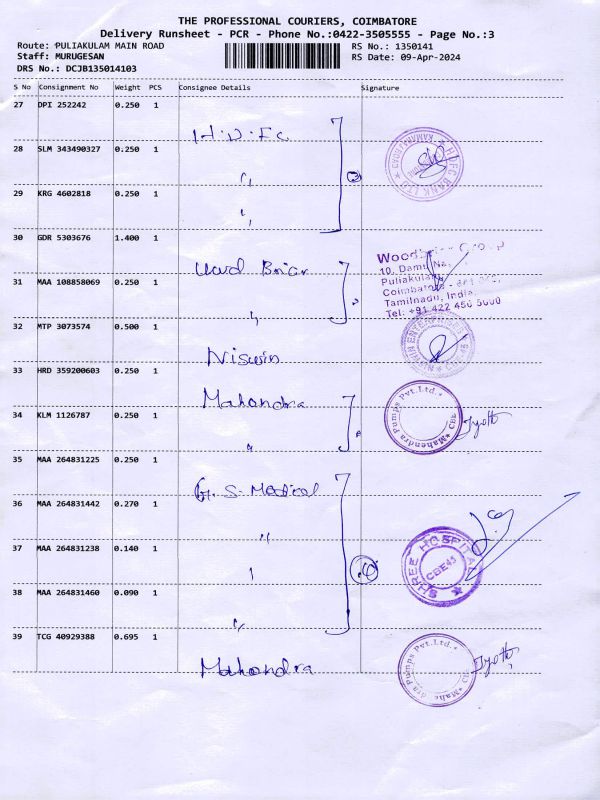 THE PROFESSIONAL COURIERS, COIMBATORE
Delivery Runsheet - PCR - Phone No.:0422-3505555 - Page No.:3
Route: PULIAKULAM MAIN ROAD RS No.: 1350141
Staff: MURUGESAN RS Date: 09-Apr-2024
DRS No.: DCJB135014103
S No Consignment No Weight PCS Consignee Details Signature
27 DPI 252242 0.250 1
H.D.Fc
28 SLM 343490327 0.250 1
HDFC BANK LTD
KAMARAJ ROAD
29 KRG 4602818 0.250 1
30 GDR 5303676 1.400 1
Woodbriar Group
10, Damu Na
Puliakula
Coimbatore - 641
Tamilnadu, India.
Tel: +91 422 456 5000
31 MAA 108858069 0.250 1
32 MTP 3073574 0.500 1
Niswin
NISWIN ENTERPRISES
33 HRD 359200603 0.250 1
Mahendra
34 KLM 1126787 0.250 1
Mahendra Pumps Pvt.Ltd. CBE
Jyothi
35 MAA 264831225 0.250 1
G. S. Medical
36 MAA 264831442 0.270 1
37 MAA 264831238 0.140 1
SHREE HOSPITAL
CBE45
38 MAA 264831460 0.090 1
39 TCG 40929388 0.695 1
Mahendra
Mahendra Pumps Pvt.Ltd. CBE
Jyothi